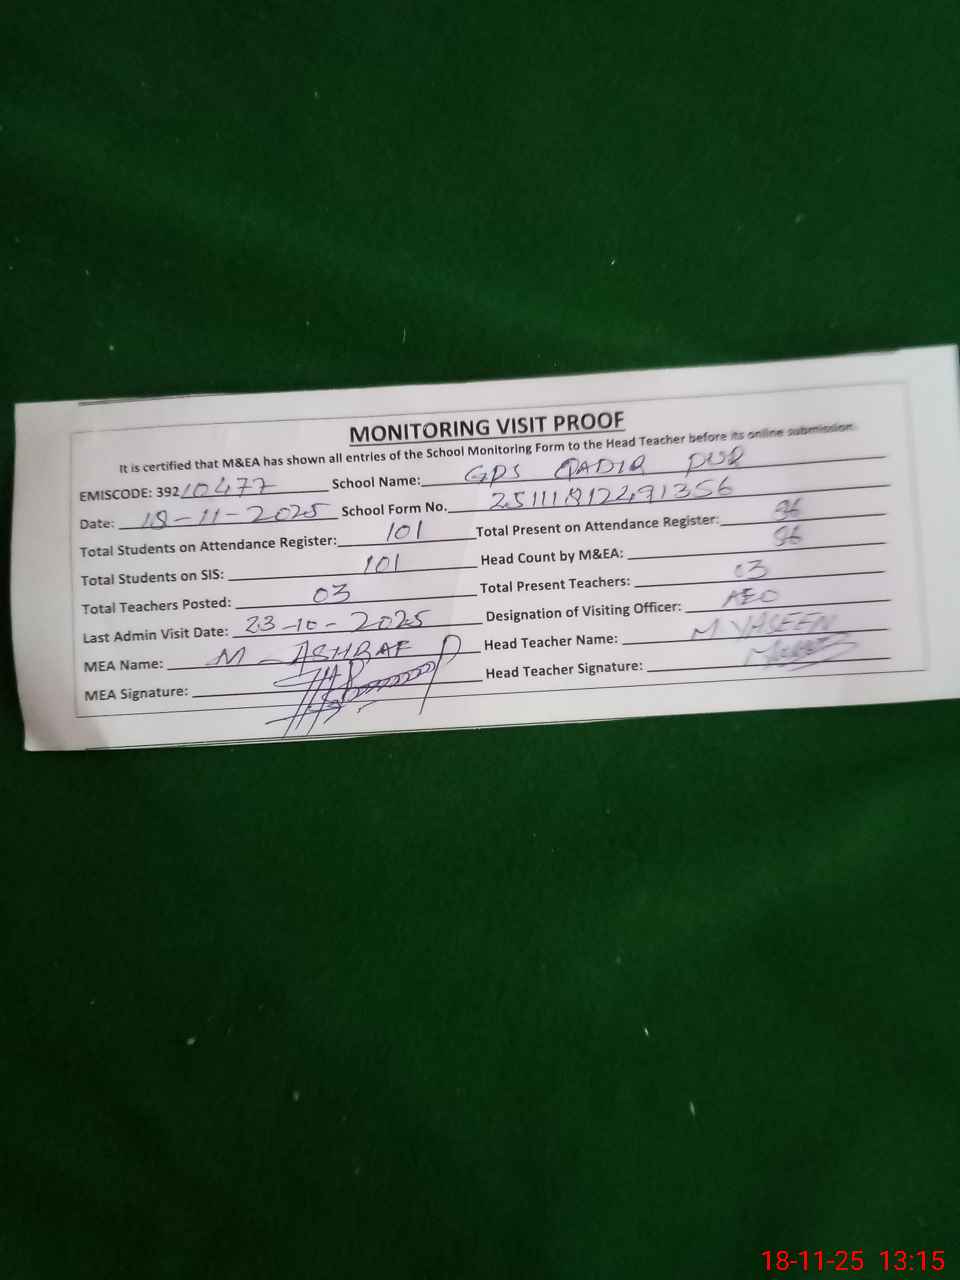 MONITORING VISIT PROOF
It is certified that M&EA has shown all entries of the School Monitoring Form to the Head Teacher before its online submission.
EMISCODE: 39210477 School Name: GPS QADIR PUR
Date: 18-11-2025 School Form No. 25111812491356
Total Students on Attendance Register: 101 Total Present on Attendance Register: 96
Total Students on SIS: 101 Head Count by M&EA: 96
Total Teachers Posted: 03 Total Present Teachers: 03
Last Admin Visit Date: 23-10-2025 Designation of Visiting Officer: AEO
MEA Name: M-ASHRAF Head Teacher Name: M YASEEN
MEA Signature: Head Teacher Signature:
18-11-25 13:15